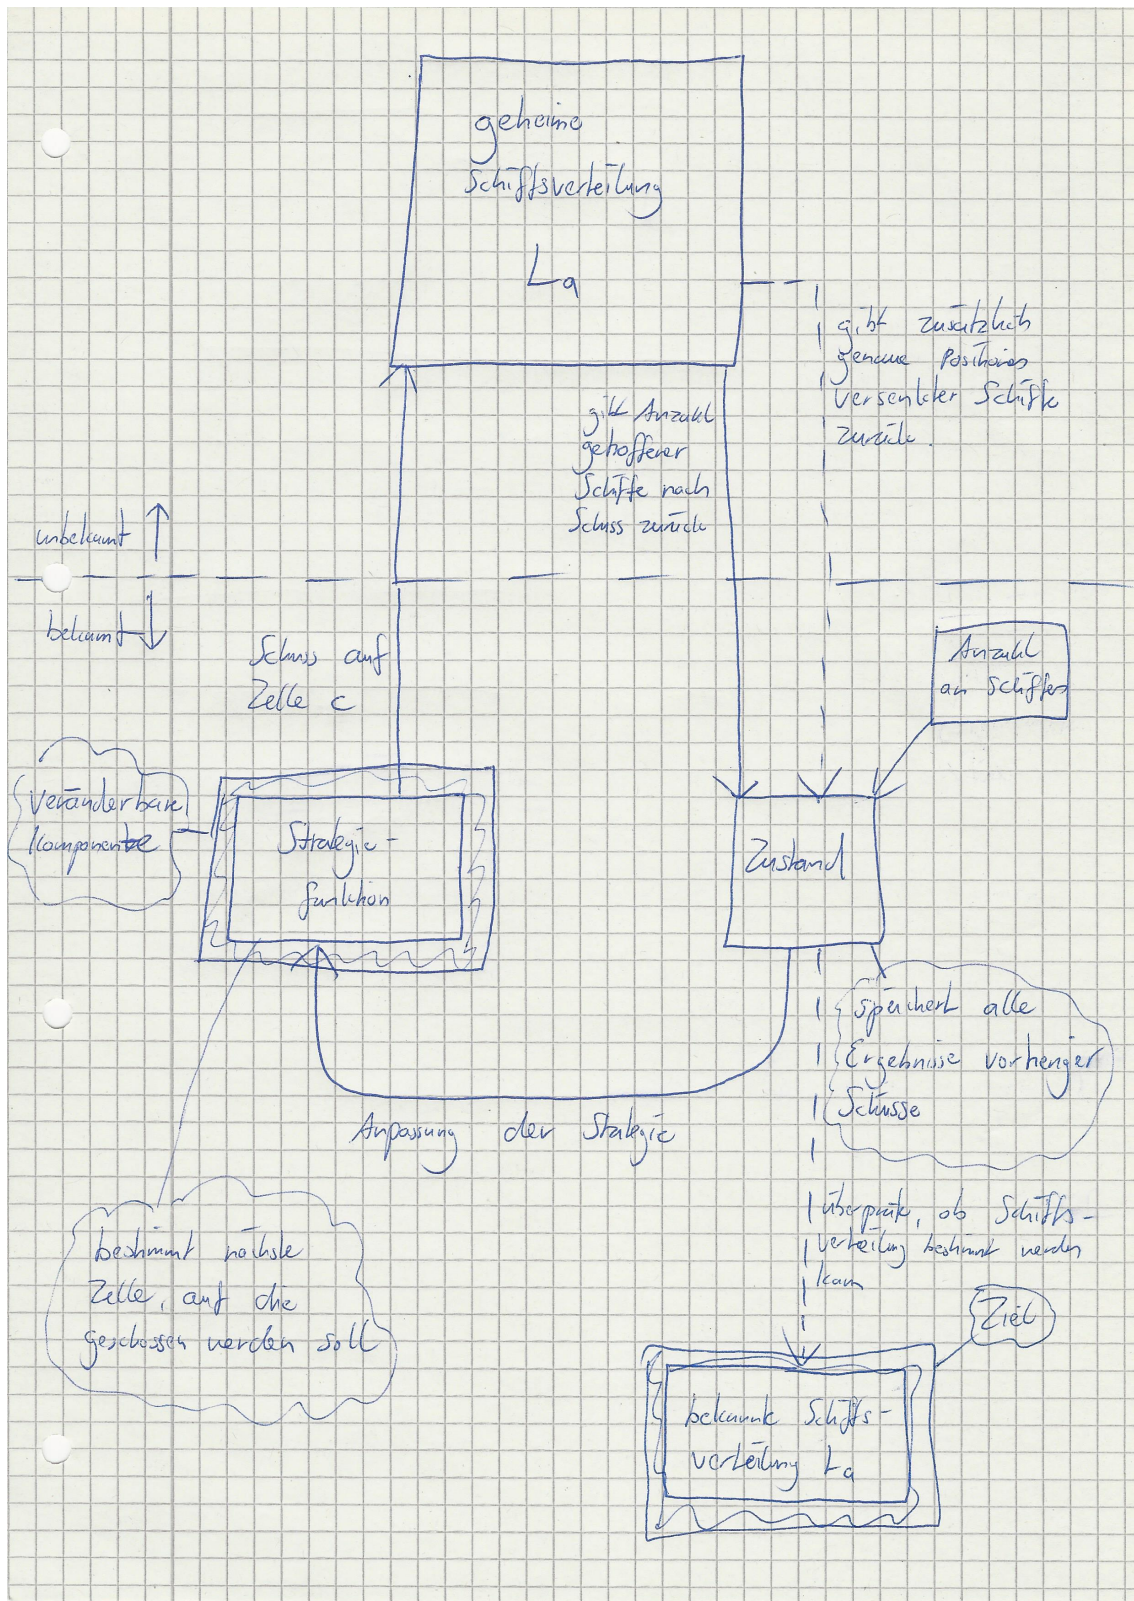 geheime
Schiffsverteilung
La
gibt zusätzlich
genaue Positionen
versenkter Schiffe
zurück.
gibt Anzahl
getroffener
Schiffe nach
Schuss zurück
unbekannt
bekannt
Schuss auf
Zelle c
Anzahl
an Schiffen
Veränderbare
Komponente
Strategie-
funktion
Zustand
speichert alle
Ergebnisse vorheriger
Schüsse
Anpassung der Strategie
überprüft, ob Schiffs-
verteilung bestimmt werden
kann
bestimmt nächste
Zelle, auf die
geschossen werden soll
Ziel
bekannte Schiffs-
verteilung La